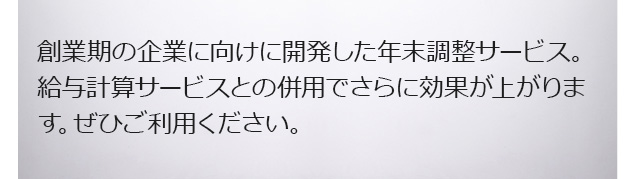 創業期の企業に向けに開発した年末調整サービス。
給与計算サービスとの併用でさらに効果が上がりま
す。ぜひご利用ください。